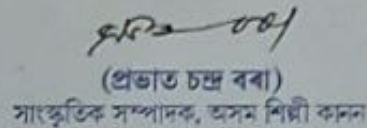 (প্ৰভাত চন্দ্ৰ বৰা)
সাংস্কৃতিক সম্পাদক, অসম শিল্পী কানন